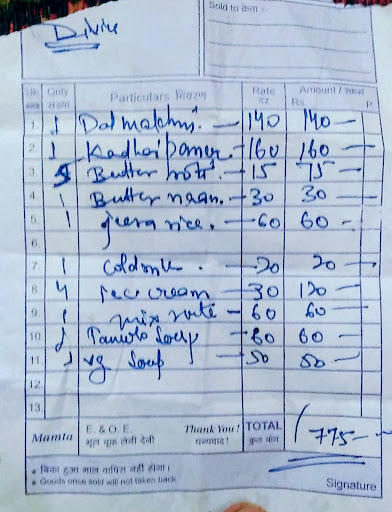 Divine
Sold to क्रेता :-
Only संख्या Particulars विवरण Rate दर Amount / रकम Rs. P.
1 1 Dal makhni. 140 140
2 1 Kadhai Paner. 160 160
3 5 Butter roti. 15 75
4 1 Butter naan. 30 30
5 1 jeera rice. 60 60
6.
7 1 Coldrink. 20 20
8 4 Icecream 30 120
9 1 mix 60 60
10 1 Tamato Soup 60 60
11 1 vg Soup 50 50
12.
13.
Mamta E. & O. E. भूल चूक लेनी देनी Thank You ! धन्यवाद ! TOTAL कुल योग 775
★ बिका हुआ माल वापिस नहीं होगा।
★ Goods once sold will not taken back. Signature